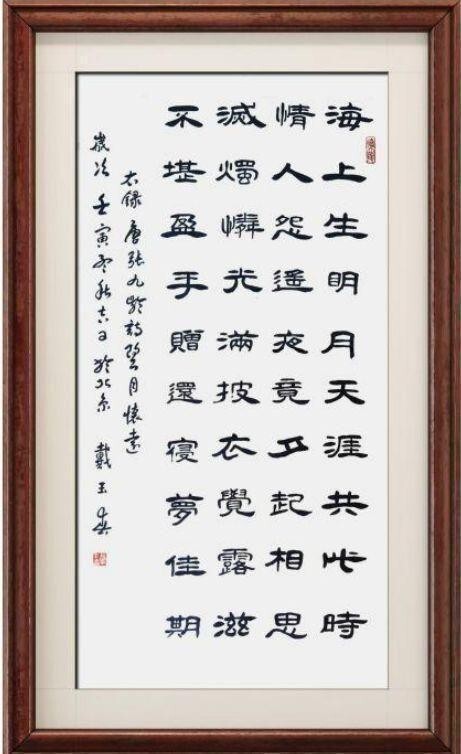 海上生明月天涯共此時
情人怨遥夜竟夕起相思
滅燭憐光滿披衣覺露滋
不堪盈手贈還寢夢佳期
右錄唐張九齡詩望月懷遠
歲次壬寅秋吉日於北京 戴玉